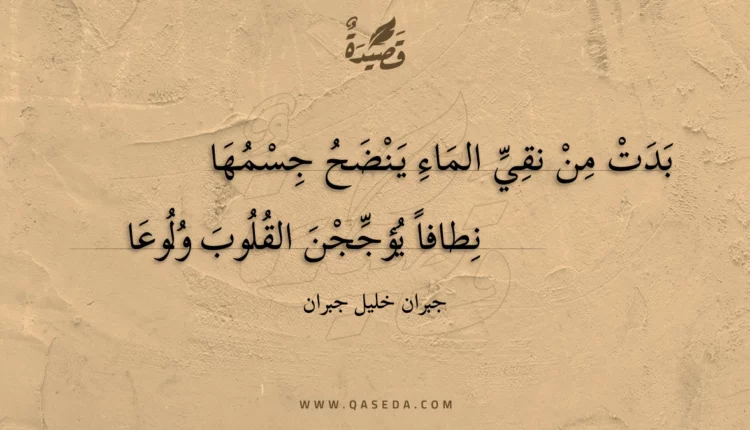 قَصِيدَةٌ
بَدَتْ مِنْ نقِيِّ المَاءِ يَنْضَحُ جِسْمُهَا
نِطافاً يُؤجِّجْنَ القُلُوبَ وُلُوعَا
جبران خليل جبران
WWW.QASEDA.COM